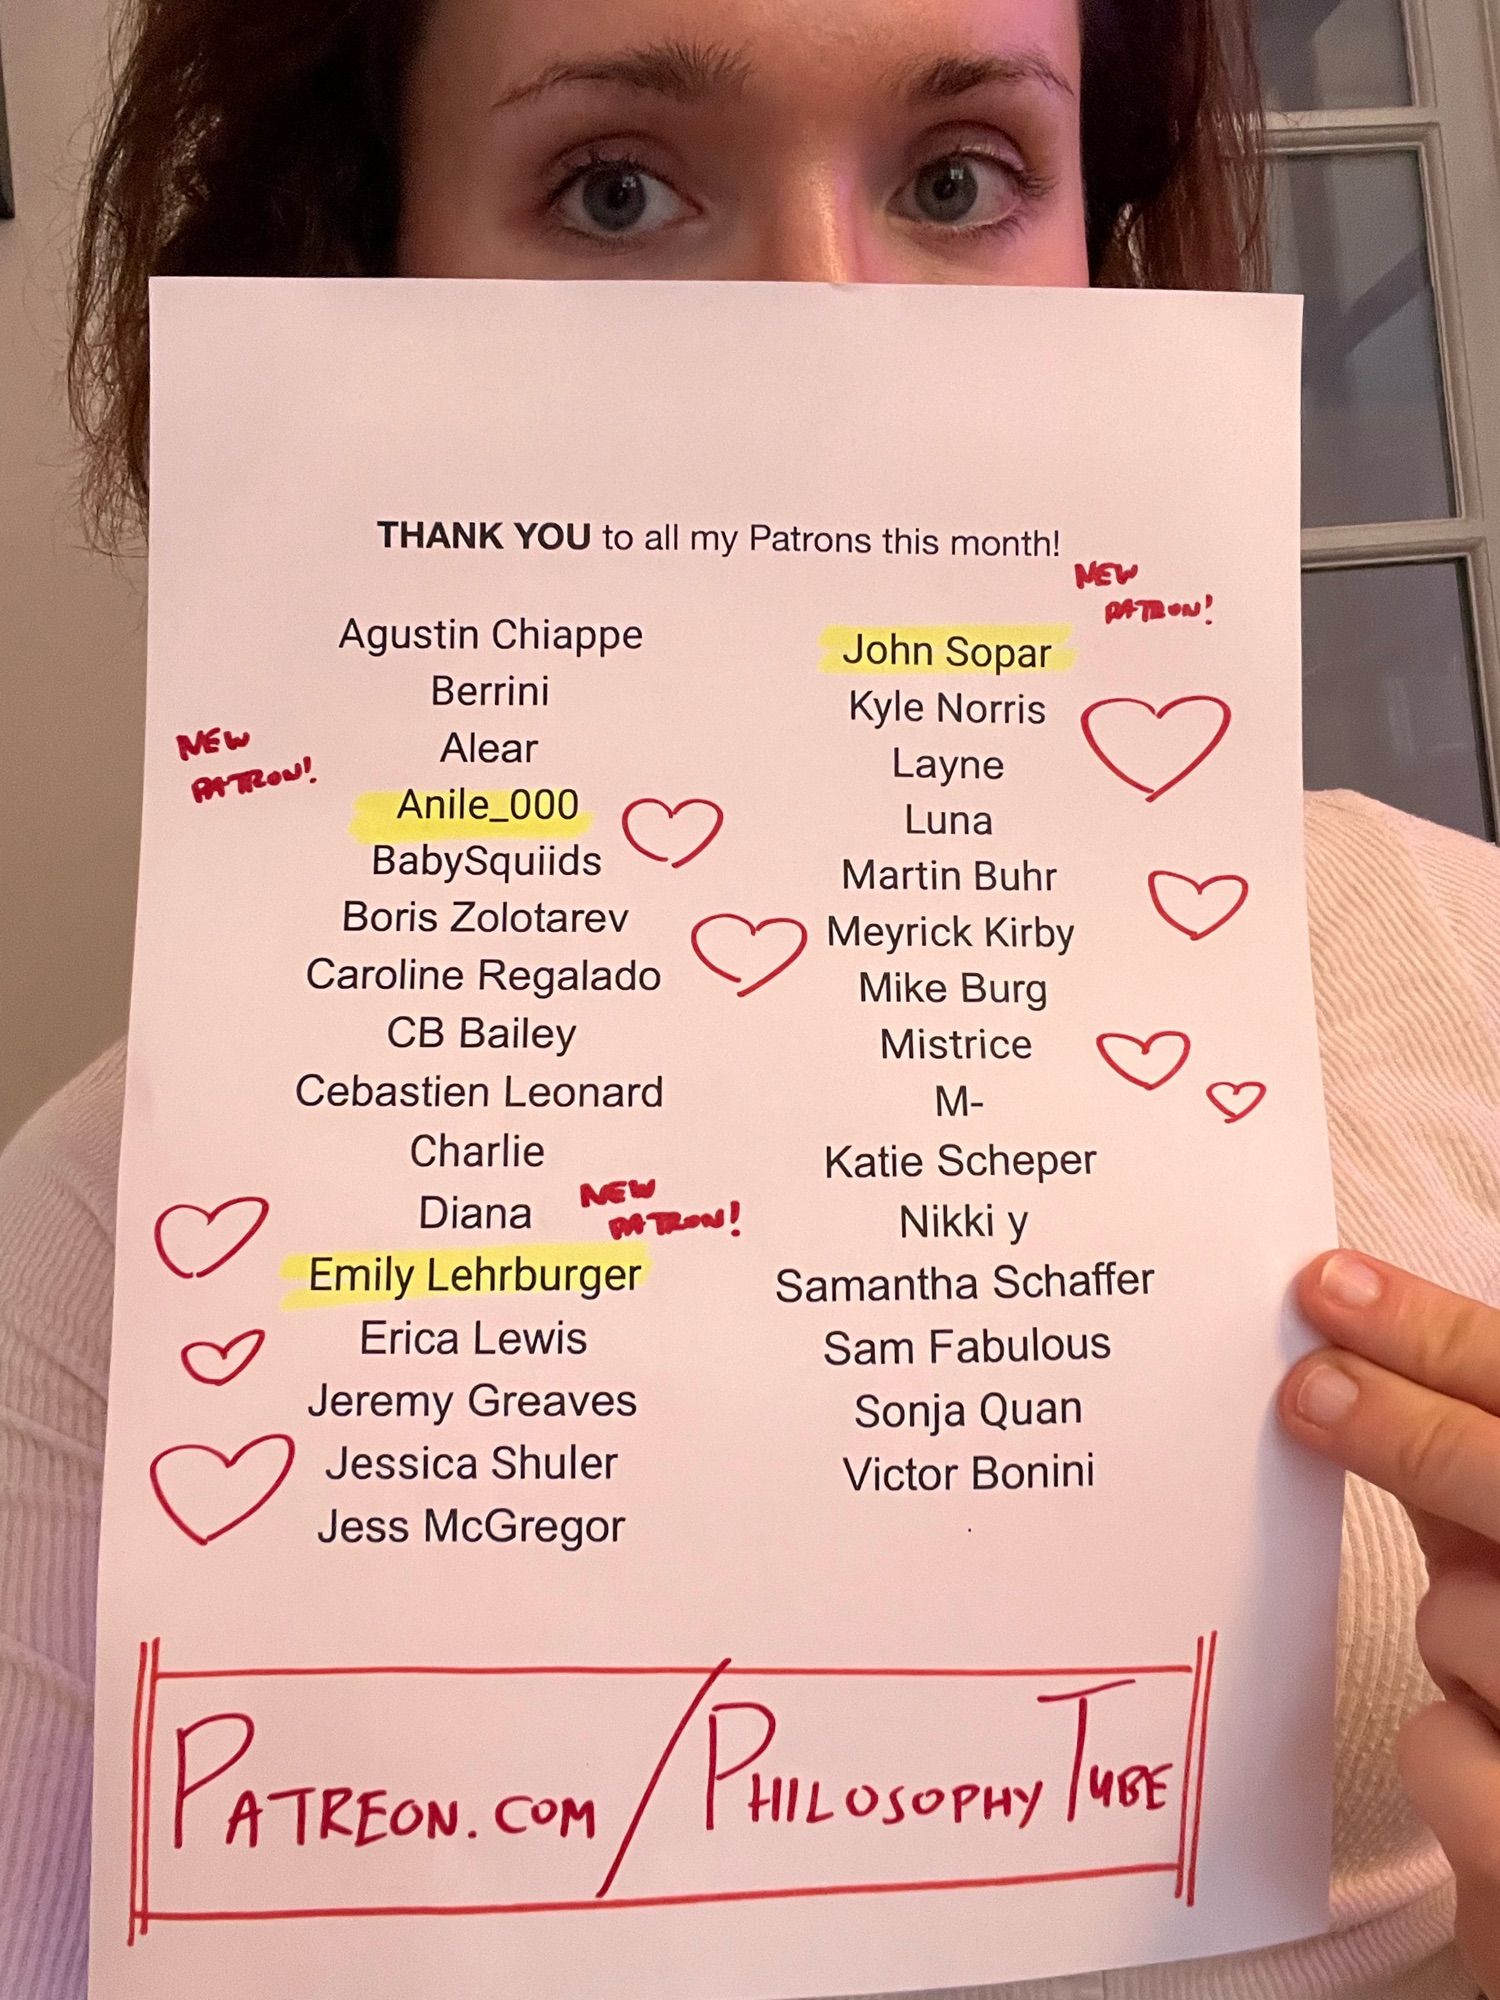 THANK YOU to all my Patrons this month!
Agustin Chiappe
Berrini
Alear
NEW
PATRON!
Anile_000
BabySquiids
Boris Zolotarev
Caroline Regalado
CB Bailey
Cebastien Leonard
Charlie
Diana
NEW
PATRON!
Emily Lehrburger
Erica Lewis
Jeremy Greaves
Jessica Shuler
Jess McGregor
NEW
PATRON!
John Sopar
Kyle Norris
Layne
Luna
Martin Buhr
Meyrick Kirby
Mike Burg
Mistrice
M-
Katie Scheper
Nikki y
Samantha Schaffer
Sam Fabulous
Sonja Quan
Victor Bonini
PATREON.COM/PHILOSOPHYTUBE